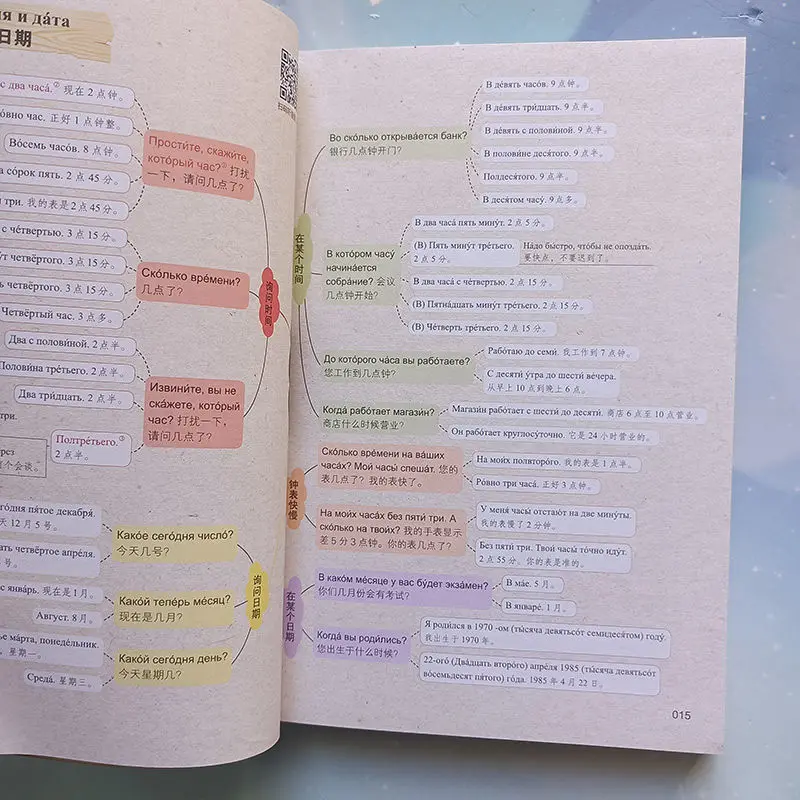 и да́та
日期
два часа́.② 现在 2 点钟。
час. 正好 1 点钟整。
Во́семь часо́в. 8 点钟。
со́рок пять. 2 点 45 分。
три. 我的表是 2 点 45 分。
с че́твертью. 3 点 15 分。
че́твёртого. 3 点 15 分。
четвёртого. 3 点 15 分。
Четвёртый час. 3 点多。
Два с полови́ной. 2 点半。
Полови́на тре́тьего. 2 点半。
Два три́дцать. 2 点半。
три.
Полтре́тьего.③
2 点半。
个会谈。
Прости́те, скажи́те,
кото́рый час?① 打扰
一下，请问几点了？
Ско́лько вре́мени?
几点了？
Извини́те, вы не
ска́жете, кото́рый
час? 打扰一下，
请问几点了？
询问时间
пя́тое декабря́.
12 月 5 号。
четвёртое апре́ля.
号。
янва́рь. 现在是 1 月。
А́вгуст. 8 月。
ма́рта, понеде́льник.
星期一。
Среда́. 星期三。
Како́е сего́дня число́?
今天几号？
Како́й тепе́рь ме́сяц?
现在是几月？
Како́й сего́дня день?
今天星期几？
询问日期
在某个时间
Во ско́лько открыва́ется банк?
银行几点钟开门？
В де́вять часо́в. 9 点钟。
В де́вять три́дцать. 9 点半。
В де́вять с полови́ной. 9 点半。
В полови́не деся́того. 9 点半。
Полдеся́того. 9 点半。
В деся́том часу́. 9 点多。
В кото́ром часу́
начина́ется
собра́ние? 会议
几点钟开始？
В два часа́ пять мину́т. 2 点 5 分。
(В) Пять мину́т тре́тьего.
2 点 5 分。
На́до бы́стро, что́бы не опозда́ть.
要快点，不要迟到了。
В два часа́ с че́твертью. 2 点 15 分。
(В) Пятна́дцать мину́т тре́тьего. 2 点 15 分。
(В) Че́тверть тре́тьего. 2 点 15 分。
До кото́рого ча́са вы рабо́таете?
您工作到几点钟？
Рабо́таю до семи́. 我工作到 7 点钟。
С десяти́ утра́ до шести́ ве́чера.
从早上 10 点到晚上 6 点。
Когда́ рабо́тает магази́н?
商店什么时候营业？
Магази́н рабо́тает с шести́ до десяти́. 商店 6 点至 10 点营业。
Он рабо́тает круглосу́точно. 它是 24 小时营业的。
钟表快慢
Ско́лько вре́мени на ва́ших
часа́х? Мои́ часы́ спеша́т. 您的
表几点了？我的表快了。
На мои́х полвторо́го. 我的表是 1 点半。
Ро́вно три часа́. 正好 3 点钟。
На мои́х часа́х без пяти́ три. А
ско́лько на твои́х? 我的手表显示
差 5 分 3 点钟。你的表几点了？
У меня́ часы́ отстаю́т на две мину́ты.
我的表慢了 2 分钟。
Без пяти́ три. Твои́ часы́ то́чно иду́т.
2 点 55 分。你的表是准的。
在某个日期
В како́м ме́сяце у вас бу́дет экза́мен?
你们几月份会有考试？
В ма́е. 5 月。
В январе́. 1 月。
Когда́ вы родили́сь?
您出生于什么时候？
Я роди́лся в 1970 -ом (ты́сяча девятьсо́т семидеся́том) году́.
我出生于 1970 年。
22-ого́ (Два́дцать второ́го) апре́ля 1985 (ты́сяча девятьсо́т
во́семьдесят пя́того) го́да. 1985 年 4 月 22 日。
015